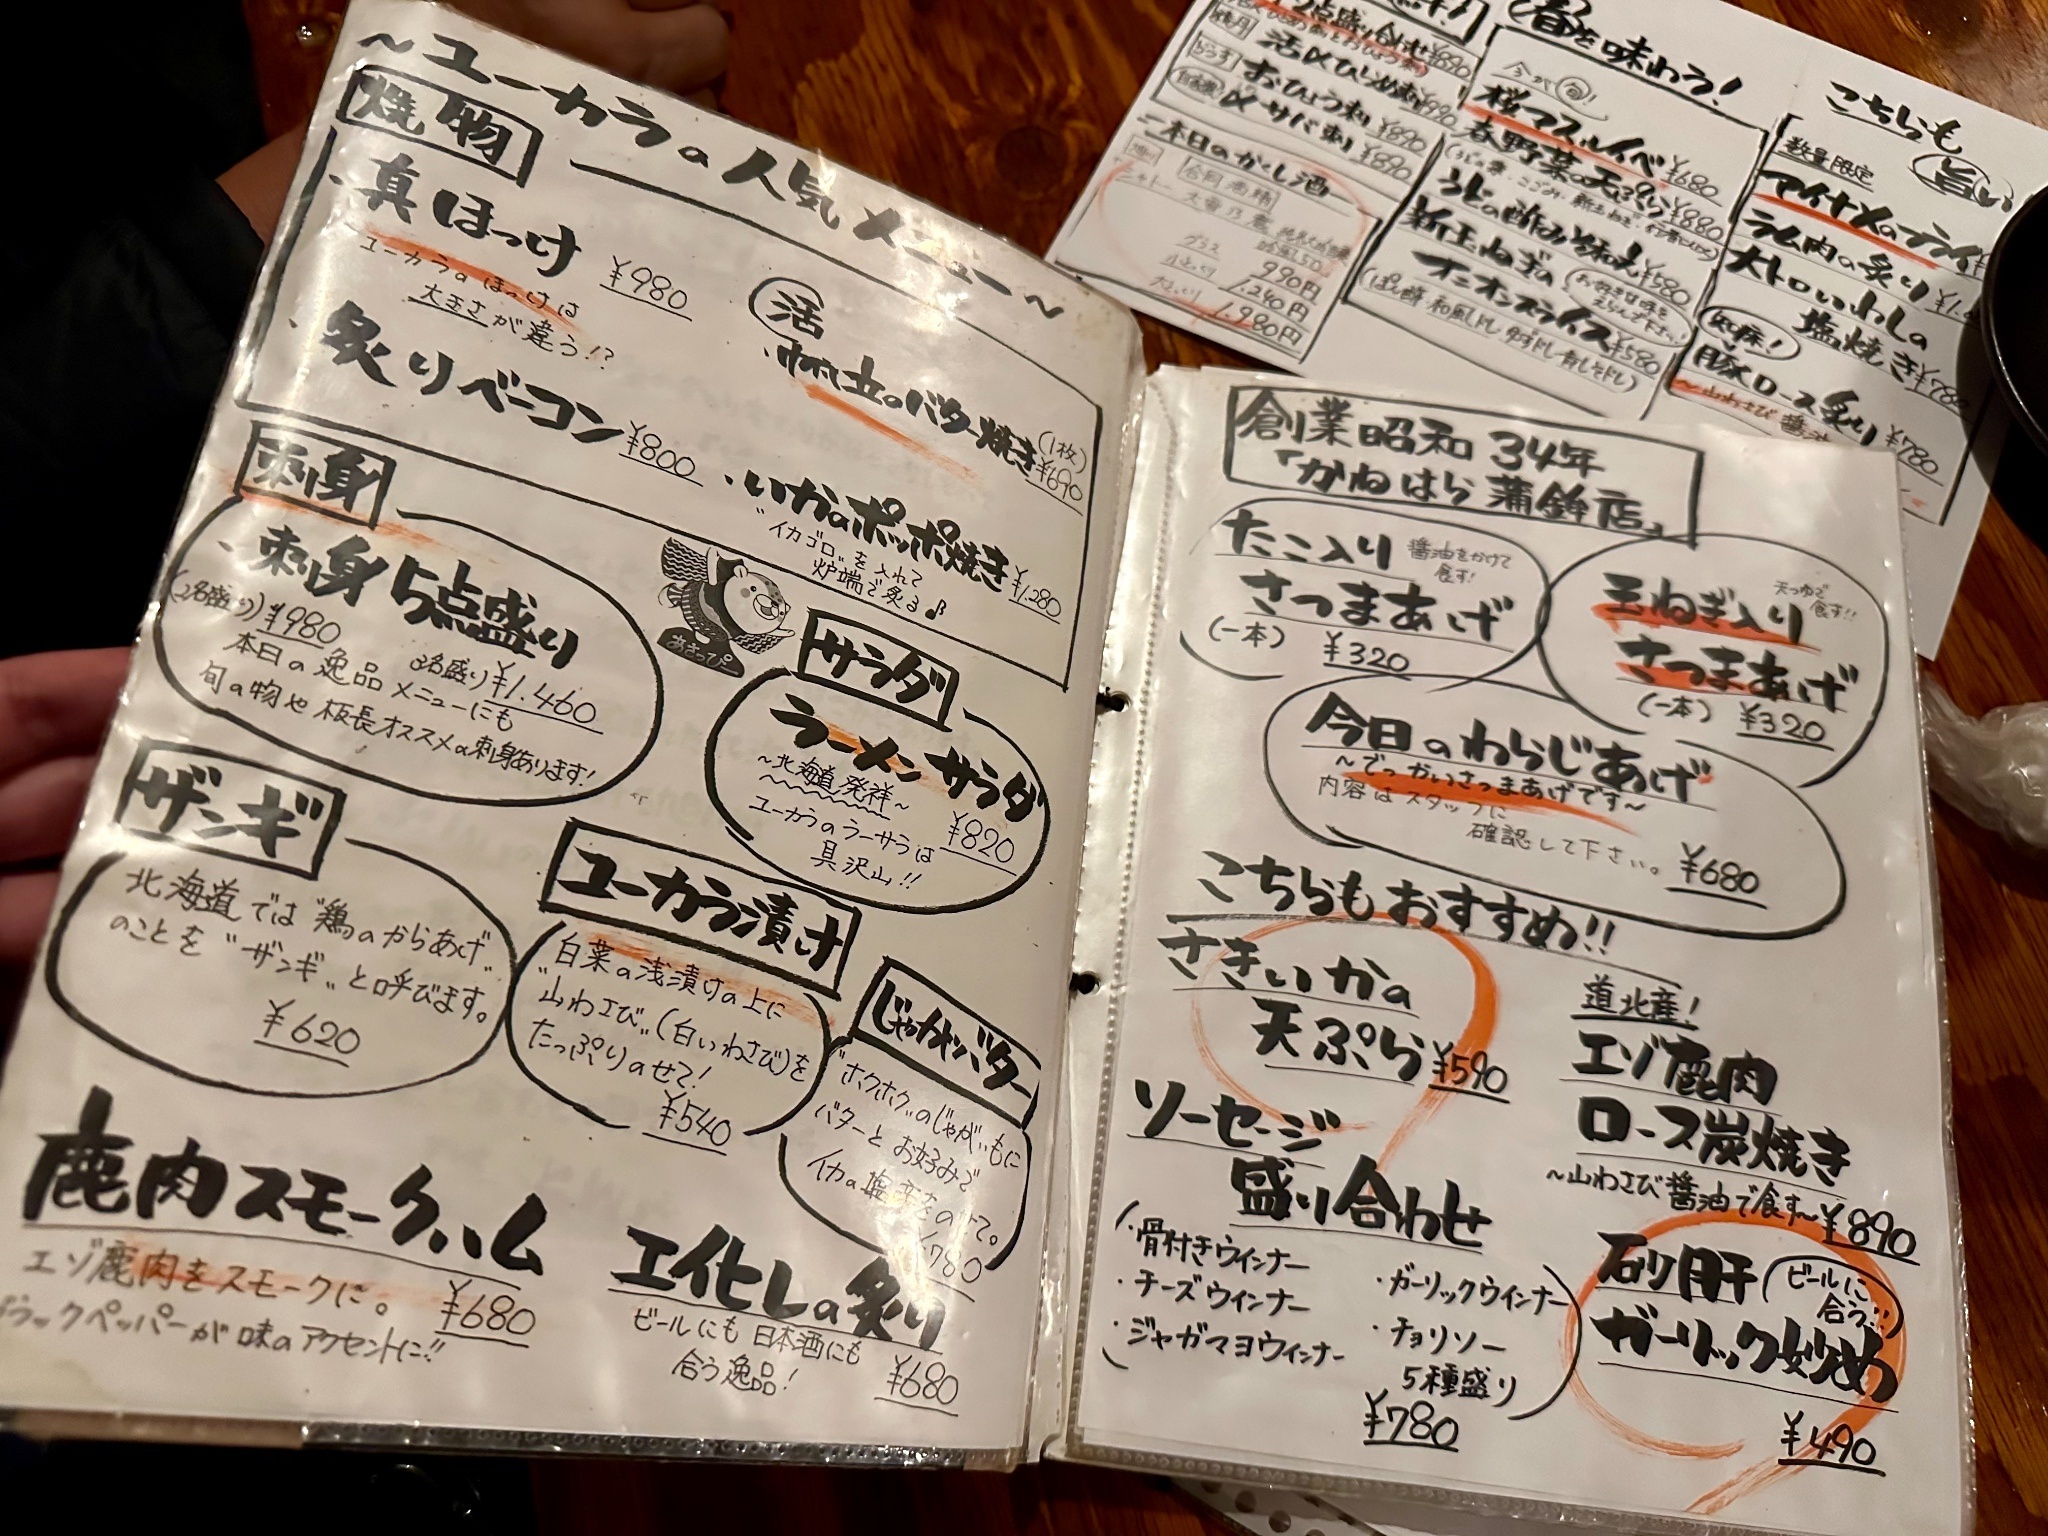 ~ユーカラの人気メニュー~
焼物
・真ほっけ ¥980
ユーカラのほっけは
大きさが違う!?
・炙りベーコン ¥800
活
・帆立のバター焼き (1枚) ¥690
・いかのポッポ焼き ¥1.280
"イカゴロ"を入れて
炉端で炙る♪
刺身
・刺身5点盛り
(2名盛り) ¥980
3名盛り ¥1.460
本日の逸品メニューにも
旬の物や板長オススメの刺身あります!
あさっぴー
サラダ
ラーメンサラダ
~北海道発祥~
¥820
ユーカラのラーサラは
具沢山!!
ザンギ
北海道では"鶏のからあげ"
のことを"ザンギ"と呼びます。
¥620
ユーカラ漬け
白菜の浅漬けの上に
"山わさび"(白いわさび)を
たっぷりのせて!
¥540
じゃがバター
"ホクホク"のじゃがいもに
バターとお好みで
イカの塩辛をのせて。
¥780
鹿肉スモークハム
エゾ鹿肉をスモークに。
¥680
ブラックペッパーが味のアクセントに!!
エイヒレの炙り
ビールにも日本酒にも
合う逸品!
¥680
創業昭和34年
「かねはら蒲鉾店」
たこ入り
醤油をかけて
食す!
さつまあげ
(一本) ¥320
玉ねぎ入り
天つゆで
食す!!
さつまあげ
(一本) ¥320
今日のわらじあげ
~でっかいさつまあげです~
内容はスタッフに
確認して下さい。 ¥680
こちらもおすすめ!!
さきいかの
天ぷら ¥590
道北産!
エゾ鹿肉
ロース炭焼き
~山わさび醤油で食す~ ¥890
ソーセージ
盛り合わせ
・骨付きウインナー
・チーズウインナー
・ジャガマヨウインナー
・ガーリックウインナー
・チョリソー
5種盛り
¥780
砂肝
ビールに
合う!!
ガーリック炒め
¥490
点盛り合わせ ¥890
活〆ひらめ刺 ¥990
おひょう刺 ¥890
〆サバ刺 ¥890
本日のかくし酒
グラス 990円
1.240円
1.980円
春を味わう!
今が旬!
桜マスルイベ ¥680
春野菜の天ぷら ¥880
うどの酢みそ和え ¥580
新玉ねぎの
オニオンスライス ¥580
お好きな味を
えらんで下さい
こちらも
旨い
数量限定
アイナメのフライ
ラム肉の炙り
大トロいわしの
塩焼き ¥780
豚ロース炙り ¥780
~山わさび醤油